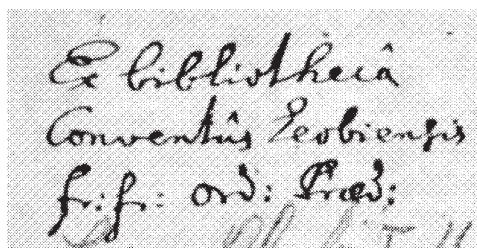 Ex bibliothecâ
Conventûs Leobiensis
fr: fr: ord: Præd: